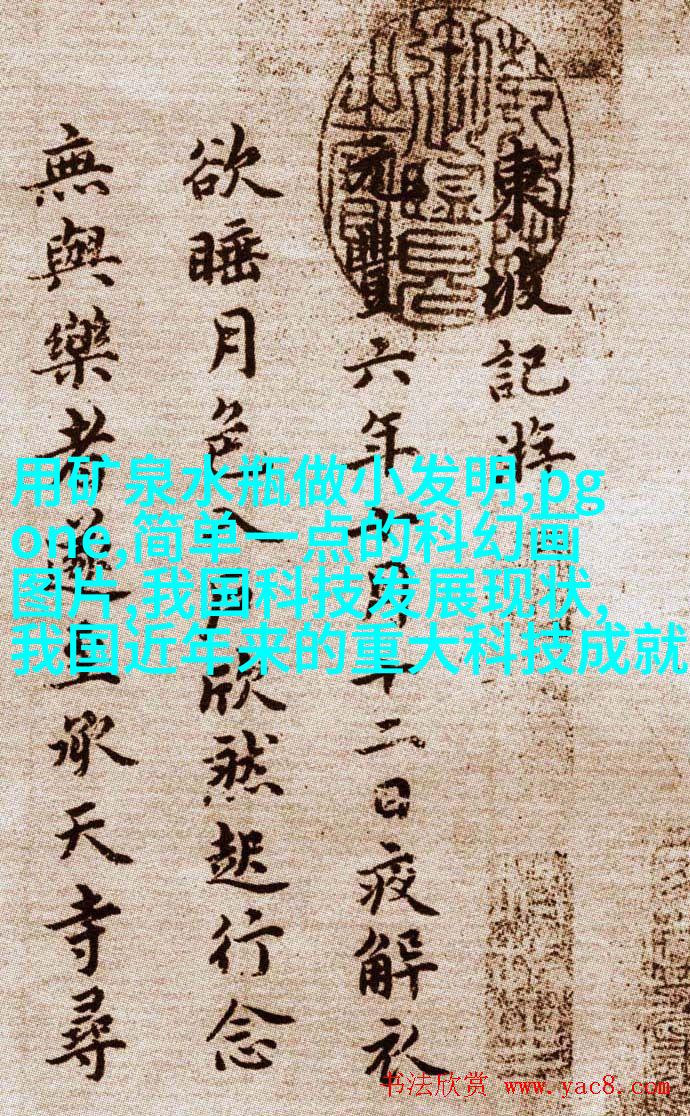 東坡記游
元豐六年十月十二日夜解衣
欲睡月色入户欣然起行念
無與樂者遂至承天寺尋
用矿泉水瓶做小发明,pg
one,简单一点的科幻画
图片,我国科技发展现状,
我国近年来的重大科技成就
书法欣赏 www.yac8.com